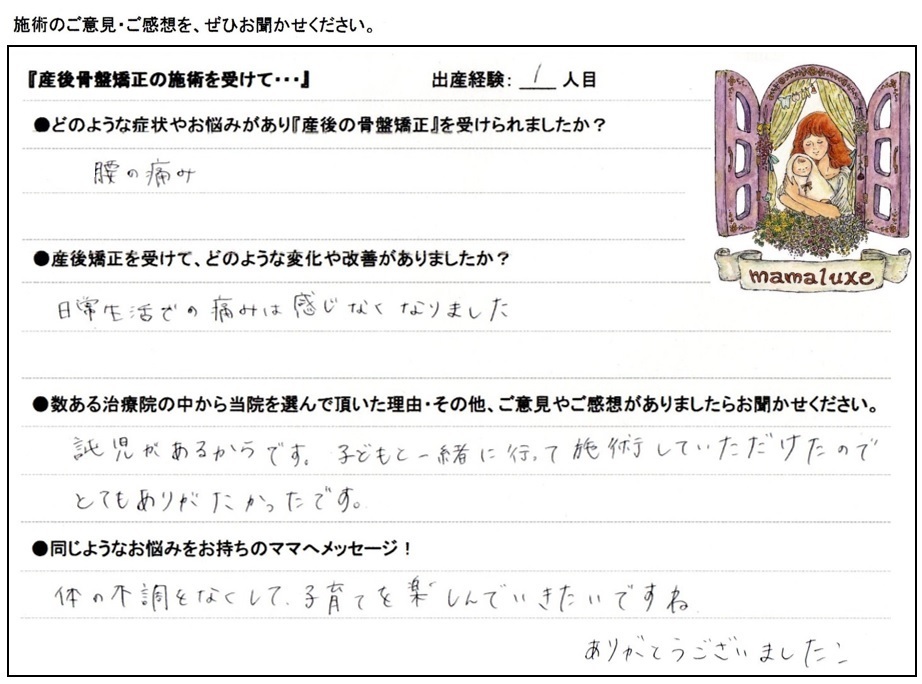 施術のご意見・ご感想を、ぜひお聞かせください。
『産後骨盤矯正の施術を受けて・・・』 出産経験： 1 人目
●どのような症状やお悩みがあり『産後の骨盤矯正』を受けられましたか？
腰の痛み
●産後矯正を受けて、どのような変化や改善がありましたか？
日常生活での痛みは感じなくなりました
mamaluxe
●数ある治療院の中から当院を選んで頂いた理由・その他、ご意見やご感想がありましたらお聞かせください。
託児があるからです。子どもと一緒に行って施術していただけたので
とてもありがたかったです。
●同じようなお悩みをお持ちのママへメッセージ！
体の不調をなくして、子育てを楽しんでいきたいですね
ありがとうございました